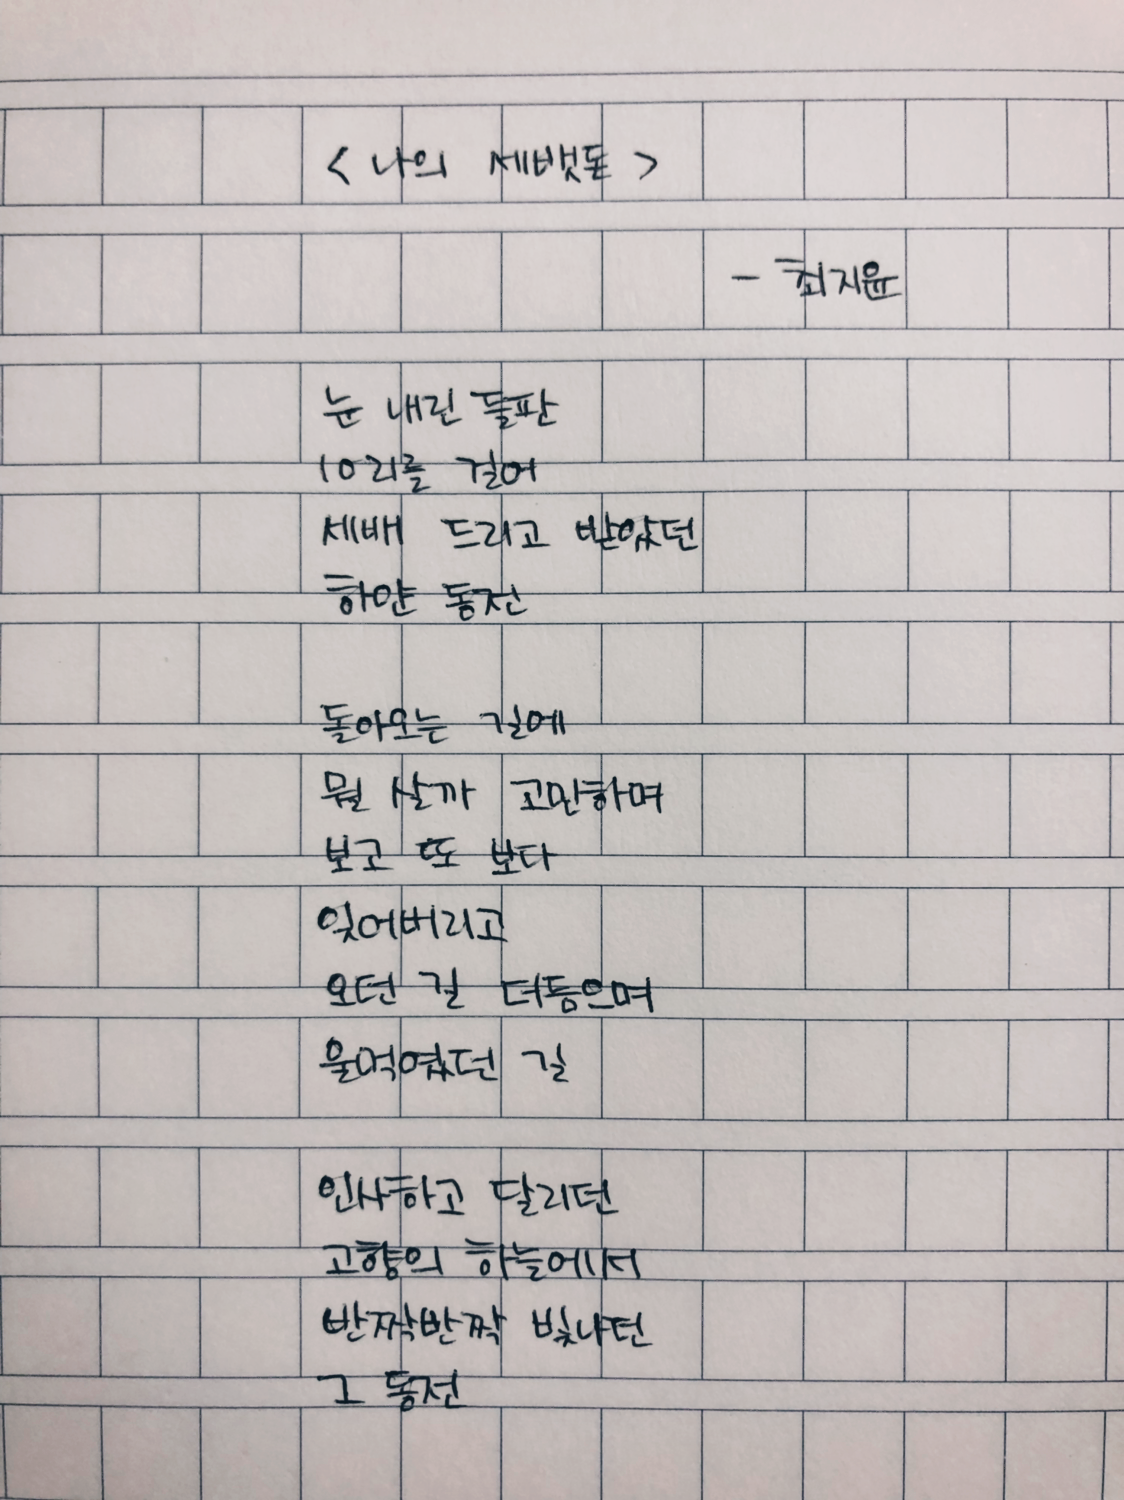 < 나의 세뱃돈 >
- 최지윤
눈 내린 들판
10리를 걸어
세배 드리고 받았던
하얀 동전
돌아오는 길에
뭘 살까 고민하며
보고 또 보다
잊어버리고
오던 길 더듬으며
울먹였던 길
인사하고 달리던
고향의 하늘에서
반짝반짝 빛나던
그 동전